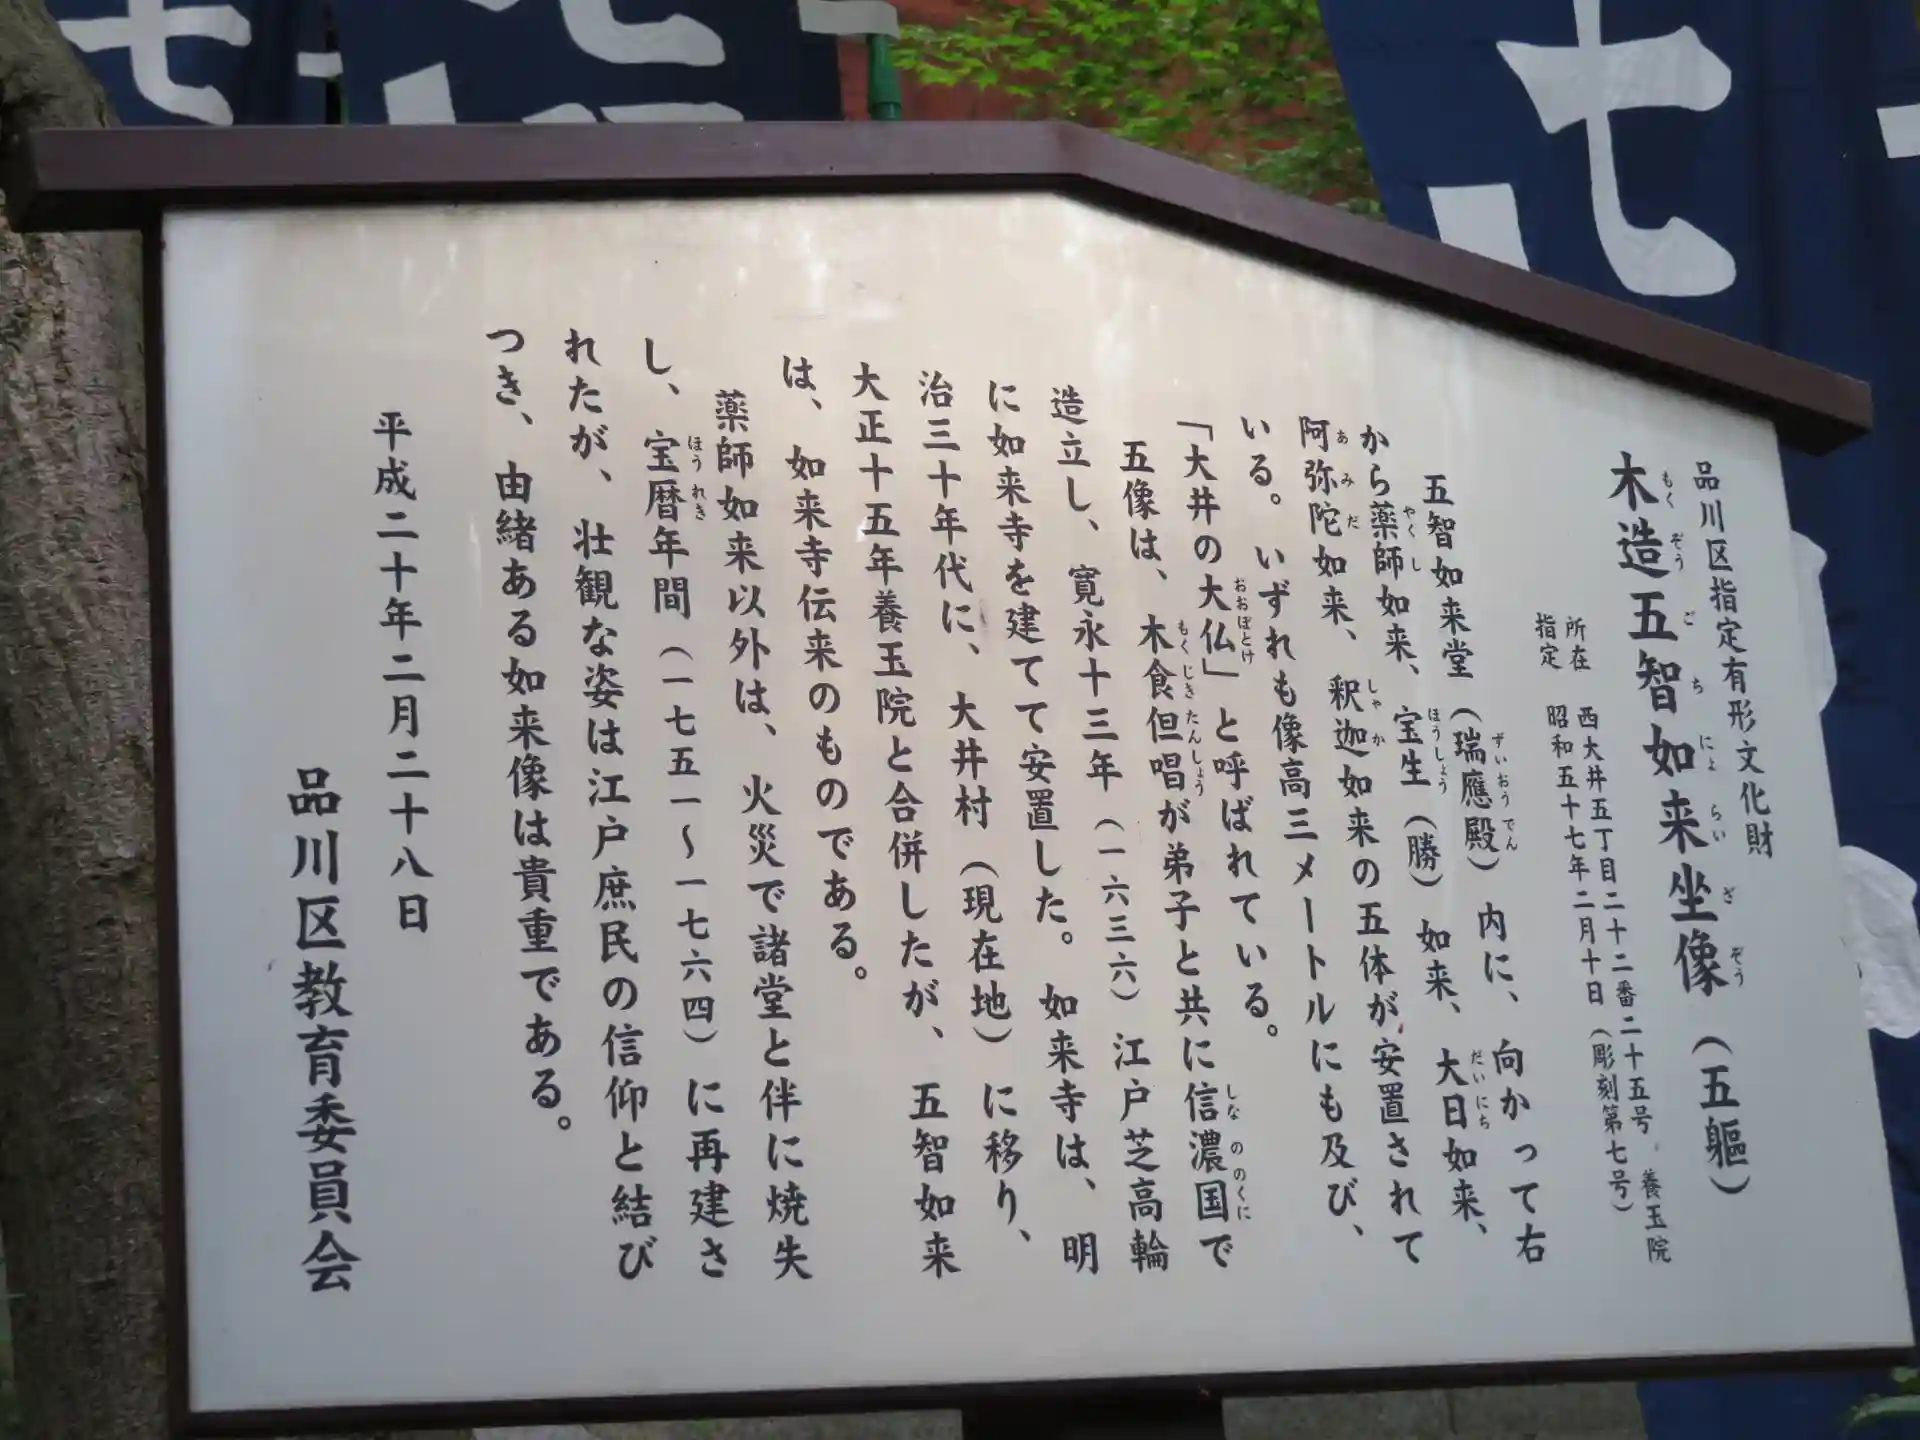 品川区指定有形文化財
木造五智如来坐像(五軀)
もくぞうごちにょらいざぞう
所在 西大井五丁目二十二番二十五号 養玉院
指定 昭和五十七年二月十日(彫刻第七号)
五智如来堂(瑞應殿)内に、向かって右
ずいおうでん
から薬師如来、宝生(勝)如来、大日如来、
やくし ほうしょう だいにち
阿弥陀如来、釈迦如来の五体が安置されて
あみだ しゃか
いる。いずれも像高三メートルにも及び、
「大井の大仏」と呼ばれている。
おおぼとけ
五像は、木食但唱が弟子と共に信濃国で
もくじきたんしょう しなののくに
造立し、寛永十三年(一六三六)江戸芝高輪
に如来寺を建てて安置した。如来寺は、明
治三十年代に、大井村(現在地)に移り、
大正十五年養玉院と合併したが、五智如来
は、如来寺伝来のものである。
薬師如来以外は、火災で諸堂と伴に焼失
し、宝暦年間(一七五一〜一七六四)に再建さ
ほうれき
れたが、壮観な姿は江戸庶民の信仰と結び
つき、由緒ある如来像は貴重である。
平成二十年二月二十八日
品川区教育委員会